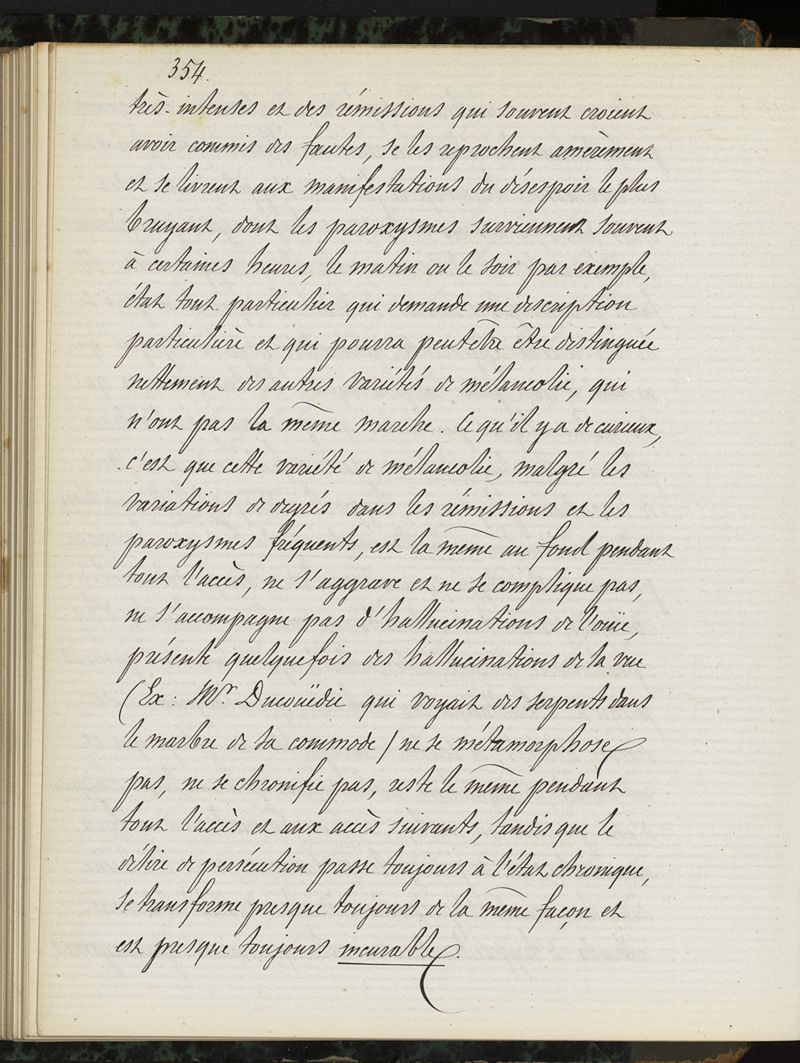 354.
très-intenses et des rémissions qui souvent croient
avoir commis des fautes, se les reprochent amèrement
et se livrent aux manifestations du désespoir le plus
bruyant, dont les paroxysmes surviennent souvent
à certaines heures, le matin ou le soir par exemple,
état tout particulier qui demande une description
particulière et qui pourra peutêtre être distinguée
nettement des autres variétés de mélancolie, qui
n'ont pas la même marche. Ce qu'il y a de curieux,
c'est que cette variété de mélancolie, malgré les
variations de degrés dans les rémissions et les
paroxysmes fréquents, est la même au fond pendant
tout l'accès, ne s'aggrave et ne se complique pas,
ne s'accompagne pas d'hallucinations de l'ouïe,
présente quelquefois des hallucinations de la vue
(Ex: Mr Ducouëdic qui voyait des serpents dans
le marbre de sa commode) ne se métamorphose
pas, ne se chronifie pas, reste le même pendant
tout l'accès et aux accès suivants, tandis que le
délire de persécution passe toujours à l'état chronique,
se transforme presque toujours de la même façon et
est presque toujours incurable.